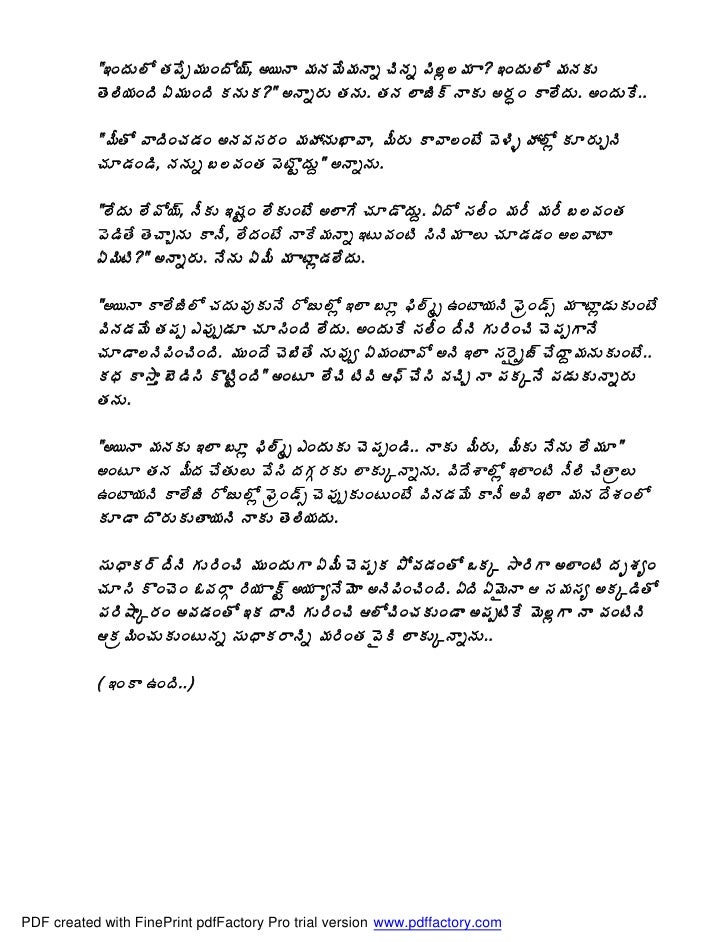 "ఇందులో తప్పేముందోయ్, అయినా మనమేమన్నా చిన్న పిల్లలమా? ఇందులో మనకు
తెలియంది ఏముంది కనుక?" అన్నారు తను. తన లాజిక్ నాకు అర్ధం కాలేదు. అందుకే..
"మీతో వాదించడం అనవసరం మహానుభావా, మీరు కావాలంటే వెళ్ళి హాల్లో కూర్చుని
చూడండి, నన్ను బలవంత పెట్టొద్దు" అన్నాను.
"లేదు లేవోయ్, నీకు ఇష్టం లేకుంటే అలాగే చూడొద్దు. ఏదో సలీం మరీ మరీ బలవంత
పెడితే తెచ్చాను కానీ, లేదంటే నాకేమన్నా ఇటువంటి సినిమాలు చూడడం అలవాటా
ఏమిటి?" అన్నారు. నేను ఏమీ మాట్లాడలేదు.
"అయినా కాలేజీలో చదువుకునే రోజుల్లో ఇలా బ్లూ ఫిల్మ్స్ ఉంటాయని ఫ్రెండ్స్ మాట్లాడుకుంటే
వినడమే తప్ప ఎప్పుడూ చూసింది లేదు. అందుకే సలీం దీని గురించి చెప్పగానే
చూడాలనిపించింది. ముందే చెబితే నువ్వు ఏమంటావో అని ఇలా సర్ప్రైజ్ చేద్దామనుకుంటే..
కధ కాస్తా బెడిసి కొట్టింది" అంటూ లేచి టివి ఆఫ్ చేసి వచ్చి నా పక్కనే పడుకున్నారు
తను.
"అయినా మనకు ఇలా బ్లూ ఫిల్మ్స్ ఎందుకు చెప్పండి.. నాకు మీరు, మీకు నేను లేమూ"
అంటూ తన మీద చేతులు వేసి దగ్గరకు లాక్కున్నాను. విదేశాల్లో ఇలాంటి నీలి చిత్రాలు
ఉంటాయని కాలేజీ రోజుల్లో ఫ్రెండ్స్ చెప్పుకుంటుంటే వినడమే కానీ అవి ఇలా మన దేశంలో
కూడా దొరుకుతాయని నాకు తెలియదు.
సుధాకర్ దీని గురించి ముందుగా ఏమీ చెప్పక పోవడంతో ఒక్క సారిగా అలాంటి దృశ్యం
చూసి కొంచెం ఓవర్గా రియాక్ట్ అయ్యానేమో అనిపించింది. ఏది ఏమైనా ఆ సమస్య అక్కడితో
పరిష్కారం అవడంతో ఇక దాని గురించి ఆలోచించకుండా అప్పటికే మెల్లగా నా వంటిని
ఆక్రమించుకుంటున్న సుధాకరాన్ని మరింత పైకి లాక్కున్నాను..
( ఇంకా ఉంది..)
PDF created with FinePrint pdfFactory Pro trial version www.pdffactory.com